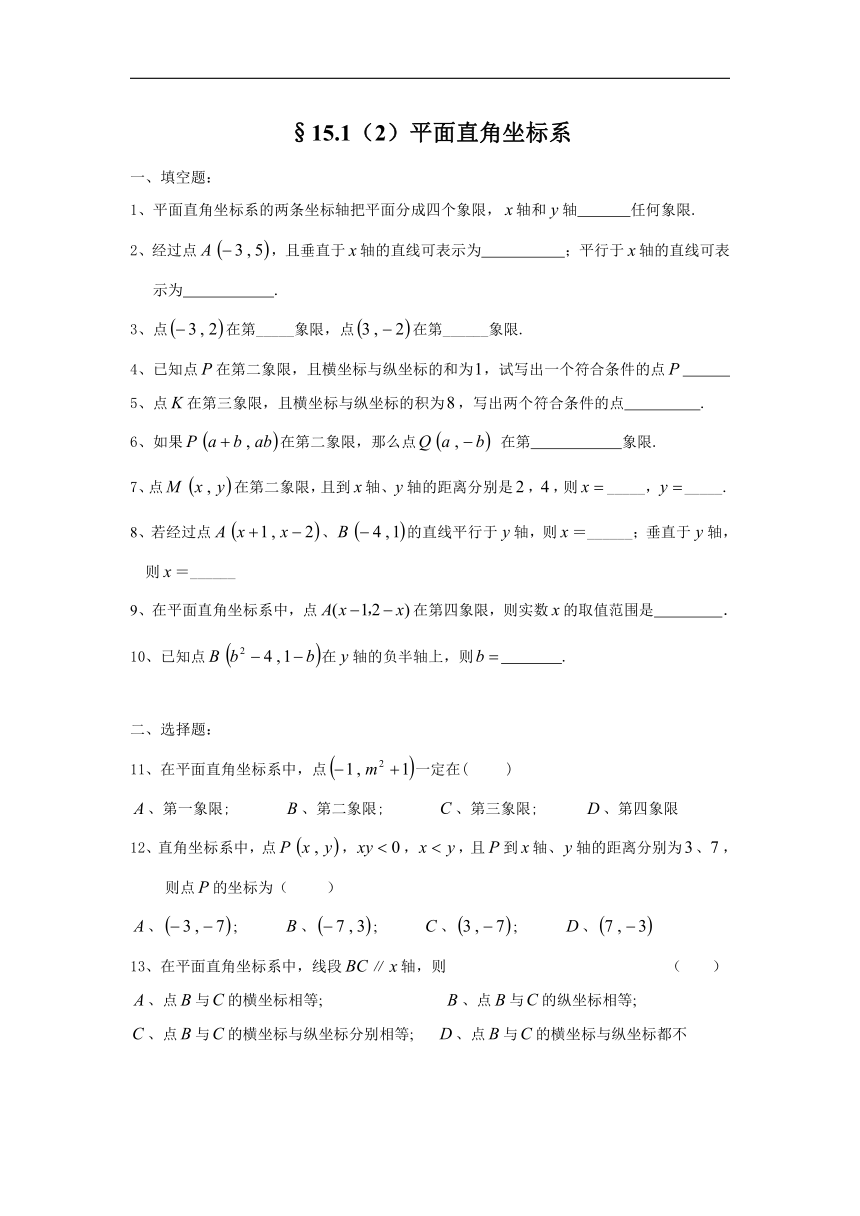 §15.1（2）平面直角坐标系
一、填空题:
1、平面直角坐标系的两条坐标轴把平面分成四个象限，x轴和y轴______任何象限.
2、经过点A (−3 , 5)，且垂直于x轴的直线可表示为__________；平行于x轴的直线可表
示为___________.
3、点(−3 , 2)在第_____象限，点(3 , −2)在第______象限.
4、已知点P在第二象限，且横坐标与纵坐标的和为1，试写出一个符合条件的点P______
5、点K在第三象限，且横坐标与纵坐标的积为8，写出两个符合条件的点_________.
6、如果P (a+b , ab)在第二象限，那么点Q (a , −b) 在第___________象限.
7、点M (x , y)在第二象限，且到x轴、y轴的距离分别是2，4，则x=_____，y=_____.
8、若经过点A (x+1 , x−2)、B (−4 , 1)的直线平行于y轴，则x＝______；垂直于y轴，
则x＝______
9、在平面直角坐标系中，点A(x−1,2−x)在第四象限，则实数x的取值范围是________．
10、已知点B (b² −4 , 1−b)在y轴的负半轴上，则b=_______.
二、选择题:
11、在平面直角坐标系中，点(−1 , m² +1)一定在( )
A、第一象限; B、第二象限; C、第三象限; D、第四象限
12、直角坐标系中，点P (x , y)，xy<0，x<y，且P到x轴、y轴的距离分别为3、7，
则点P的坐标为（ ）
A、(−3 , −7); B、(−7 , 3); C、(3 , −7); D、(7 , −3)
13、在平面直角坐标系中，线段BC∥x轴，则 （ ）
A、点B与C的横坐标相等; B、点B与C的纵坐标相等;
C、点B与C的横坐标与纵坐标分别相等; D、点B与C的横坐标与纵坐标都不